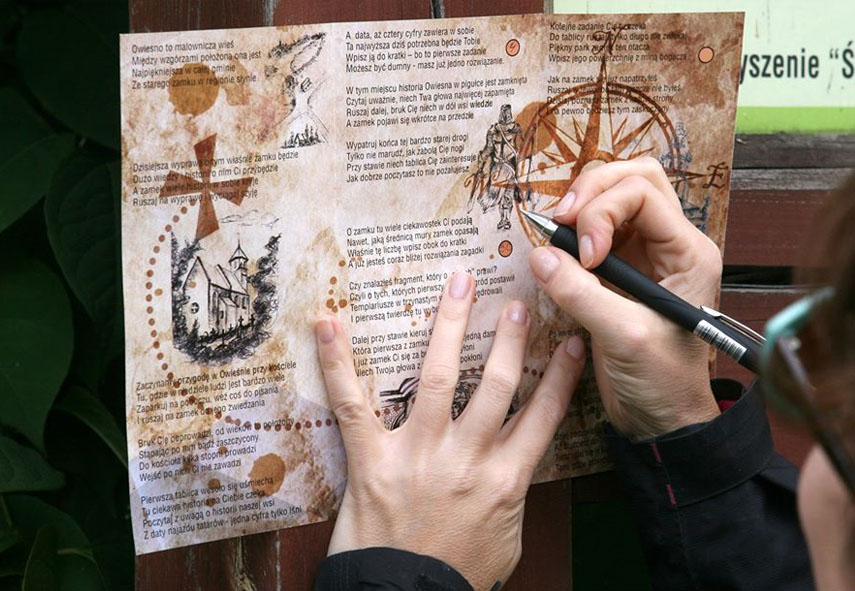 Owiesno to malownicza wieś
Między wzgórzami położona ona jest
Najpiękniejsza w całej gminie
Ze starego zamku w regionie słynie
Dzisiejsza wyprawa o tym właśnie zamku będzie
Dużo wiedzy i historii o nim Ci przybędzie
A zamek wiele historii w sobie kryje
Ruszaj na wyprawę i wyciągaj szyję
Zaczynamy przygodę w Owieśnie przy kościele
Tu, gdzie w niedziele ludzi jest bardzo wiele
Zaparkuj na poboczu, weź coś do pisania
I ruszaj na zamek do jego zwiedzania
Bruk Cię poprowadzi, od wieków tu położony
Stąpając po nim bądź zaszczycony
Do kościoła kilka stopni prowadzi
Wejść po nich Ci nie zawadzi
Pierwsza tablica wesoło się uśmiecha
Tu ciekawa historia na Ciebie czeka
Poczytaj z uwagą o historii naszej wsi
Z daty najazdu tatarów - jedna cyfra tylko lśni
A data, aż cztery cyfry zawiera w sobie
Ta najwyższa dziś potrzebna będzie Tobie
Wpisz ją do kratki – bo to pierwsze zadanie
Możesz być dumny - masz już jedno rozwiązanie.
W tym miejscu historia Owiesna w pigułce jest zamknięta
Czytaj uważnie, niech Twa głowa najwięcej zapamięta
Ruszaj dalej, bruk Cię niech w dół wsi wiedzie
A zamek pojawi się wkrótce na przedzie
Wypatruj końca tej bardzo starej drogi
Tylko nie marudź, jak zabolą Cię nogi
Przy stawie niech tablica Cię zainteresuje
Jak dobrze poczytasz to nie pożałujesz
O zamku tu wiele ciekawostek Ci podają
Nawet, jaką średnicą mury zamek opasają
Właśnie tę liczbę wpisz obok do kratki
A już jesteś coraz bliżej rozwiązania zagadki
Czy znalazłeś fragment, który o prawi?
Czyli o tych, których pierwszy gród postawił
Templariusze w trzynastym wędrowali
I pierwszą twierdzę tu wybudowali
Dalej przy stawie kieruj jedną
Która pierwsza z zamku
I już zamek Ci się za pokłoni
Niech Twoja głowa pokłoni
Kolejne zadanie Cię tu czeka
Do tablicy ruszaj tylko długo nie zwlekaj
Piękny park zamek ten otacza
Wpisz jego powierzchnię z miną bogacza
Jak na zamek się już napatrzyłeś
nie byłeś
strony
Na pewno będziesz tym zaskoczony
W
E
yszenie "Ś